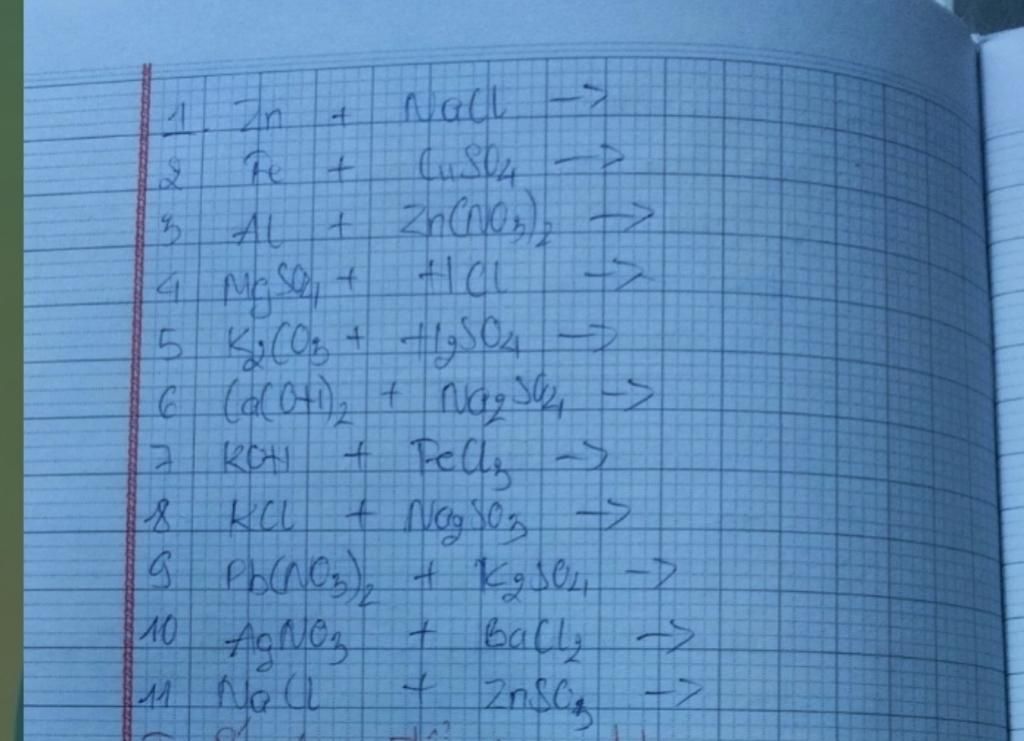 1. Zn + NaCl →
2 Fe + CuSO4 →
3 Al + Zn(NO3)2 →
4 MgSO4 + HCl →
5 K2CO3 + H2SO4 →
6 Ca(OH)2 + Na2SO4 →
7 KOH + FeCl3 →
8 KCl + Na2SO3 →
9 Pb(NO3)2 + K2SO4 →
10 AgNO3 + BaCl2 →
11 NaCl + ZnSO3 →